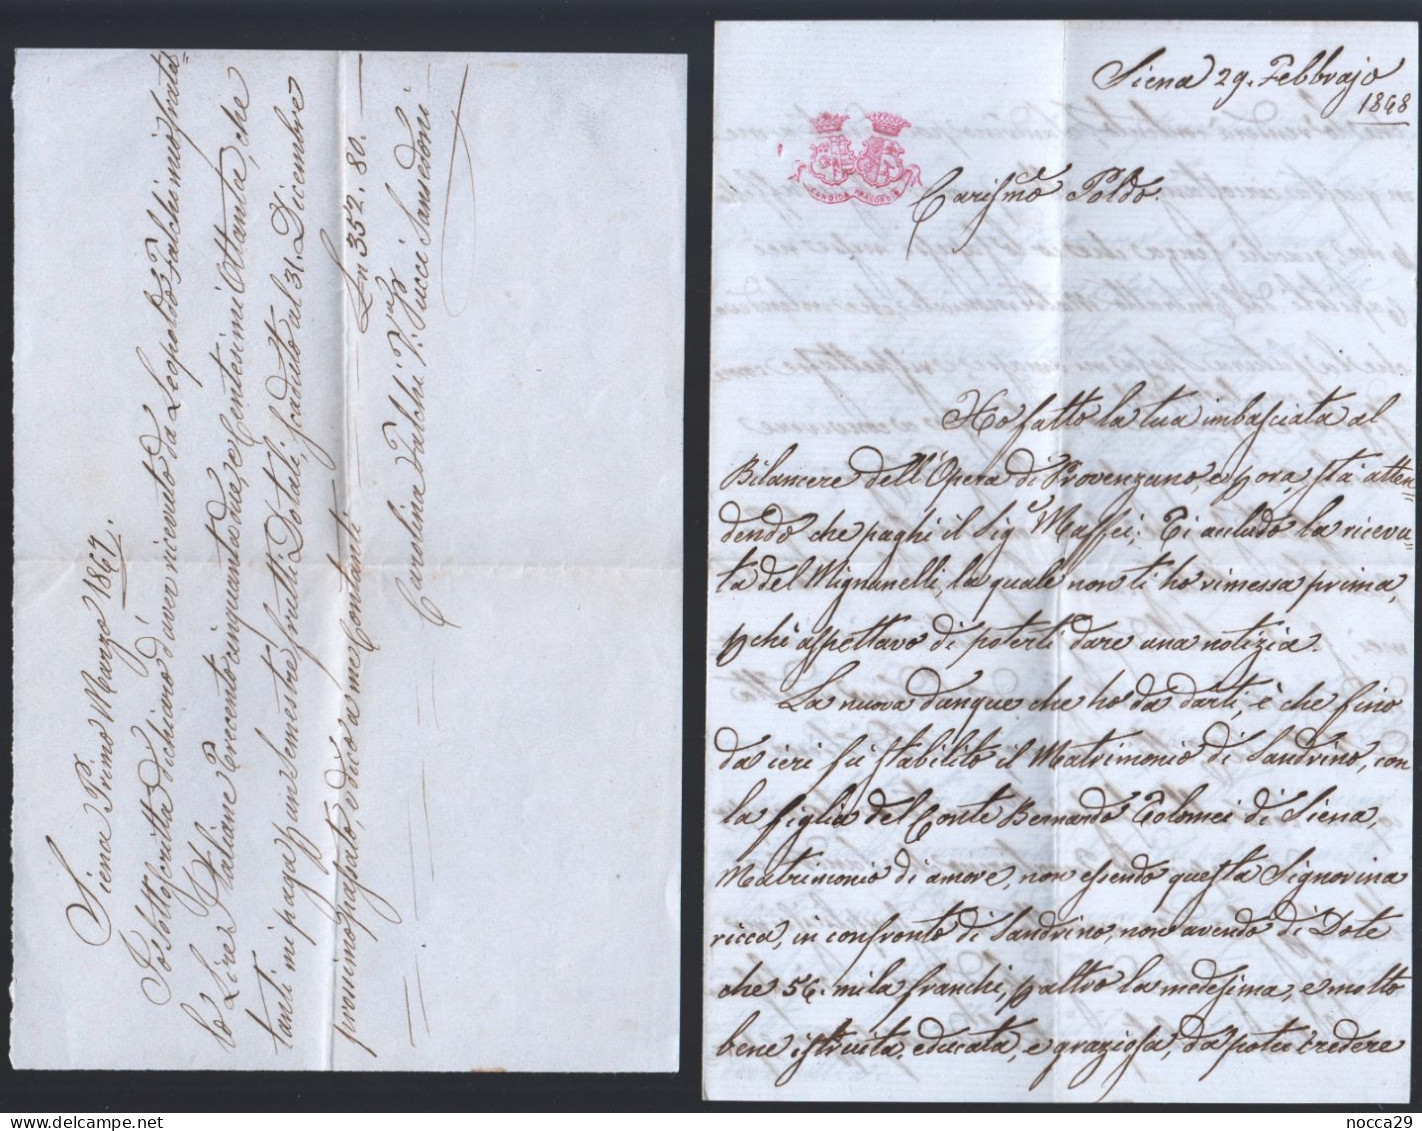 Siena Primo Marzo 1867.
Io sottoscritta dichiaro d'aver ricevuto da Leopoldo Falchi mio frata-
lo Lire Italiane Trecento cinquantadue, e Centesimi Ottanta, che
tanti mi paga p un semestre frutti Dotali, scaduto al 31. Dicembre
prossimo passato, e dico a me Contanti Ln 352. 80. —
Carolina Falchi Va Pucci Sansedoni
Siena 29. Febbrajo
1868
CANDIDA PRAECORDIA
Carissmo Poldo.
Ho fatto la tua imbasciata al
Bilancere dell'Opera di Provenzano, e pora, stà atten-
dendo che paghi il Sigr Maffei; Ti accludo la ricevu-
ta del Mignanelli, la quale non ti ho rimessa prima,
pchè aspettavo di poterti dare una notizia.
La nuova dunque che ho da darti, è che fino
da ieri fu stabilito il Matrimonio di Sandrino, con
la figlia del Conte Bernardo Tolomei di Siena,
Matrimonio di amore, non essendo questa Signorina
ricca, in confronto di Sandrino, non avendo di Dote
che 56. mila franchi, p altro la medesima, e molto
bene istruita, educata, e graziosa, da poter credere
nocca29